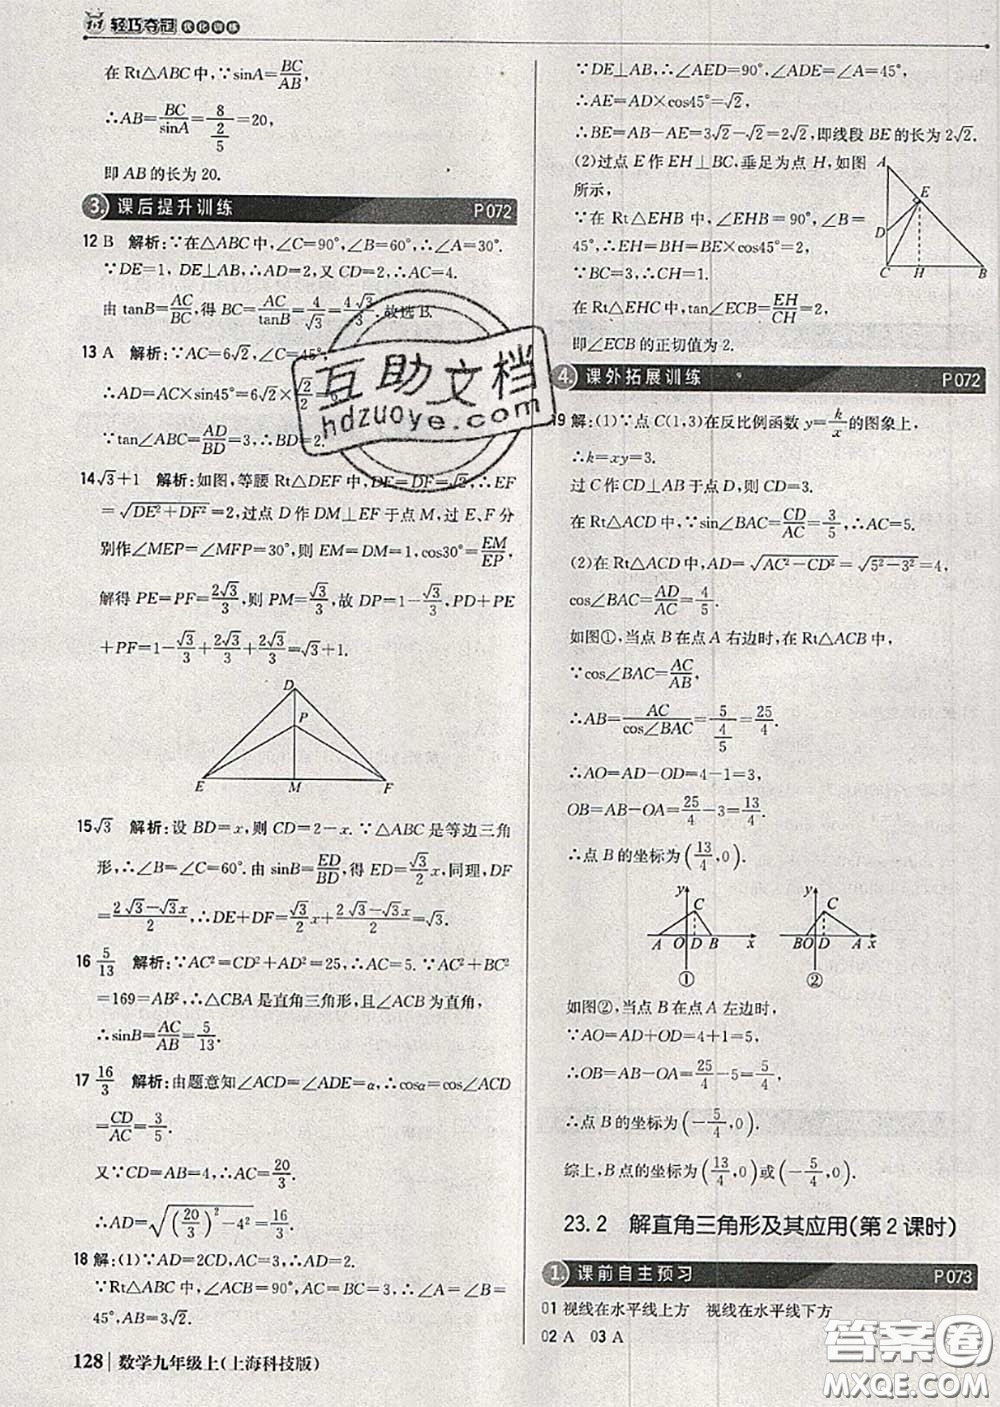 轻巧夺冠 优化训练
在Rt△ABC中,∵sinA=BC/AB,
∴AB=BC/sinA=8/(2/5)=20,
即AB的长为20.
3. 课后提升训练 P072
12 B 解析:∵在△ABC中,∠C=90°,∠B=60°,∴∠A=30°.
∵DE=1,DE⊥AB,∴AD=2,又CD=2,∴AC=4.
由tanB=AC/BC,得BC=AC/tanB=4/√3=4√3/3.故选B.
13 A 解析:∵AC=6√2,∠C=45°,
∴AD=AC×sin45°=6√2×√2/2=6.
∵tan∠ABC=AD/BD=3,∴BD=2.
14 √3+1 解析:如图,等腰Rt△DEF中,DE=DF=√2,∴EF
=√(DE²+DF²)=2,过点D作DM⊥EF于点M,过E、F分
别作∠MEP=∠MFP=30°,则EM=DM=1,cos30°=EM/EP,
解得PE=PF=2√3/3,则PM=√3/3,故DP=1-√3/3,PD+PE
+PF=1-√3/3+2√3/3+2√3/3=√3+1.
D
P
E M F
15 √3 解析:设BD=x,则CD=2-x.∵△ABC是等边三角
形,∴∠B=∠C=60°.由sinB=ED/BD,得ED=√3/2 x,同理,DF
=(2√3-√3x)/2,∴DE+DF=√3/2 x+(2√3-√3x)/2=√3.
16 5/13 解析:∵AC²=CD²+AD²=25,∴AC=5.∵AC²+BC²
=169=AB²,∴△CBA是直角三角形,且∠ACB为直角,
∴sinB=AC/AB=5/13.
17 16/3 解析:由题意知∠ACD=∠ADE=α,∴cosα=cos∠ACD
=CD/AC=3/5.
又∵CD=AB=4,∴AC=20/3.
∴AD=√((20/3)²-4²)=16/3.
18 解:(1)∵AD=2CD,AC=3,∴AD=2.
∵Rt△ABC中,∠ACB=90°,AC=BC=3,∴∠A=∠B=45°,
AB=3√2.
∵DE⊥AB,∴∠AED=90°,∠ADE=∠A=45°,
∴AE=AD×cos45°=√2,
∴BE=AB-AE=3√2-√2=2√2,即线段BE的长为2√2.
(2)过点E作EH⊥BC,垂足为点H,如图
所示,
∵在Rt△EHB中,∠EHB=90°,∠B=
45°,∴EH=BH=BE×cos45°=2.
∵BC=3,∴CH=1.
在Rt△EHC中,tan∠ECB=EH/CH=2,
即∠ECB的正切值为2.
A
E
D
C H B
4. 课外拓展训练 P072
19 解:(1)∵点C(1,3)在反比例函数y=k/x的图象上,
∴k=xy=3.
过C作CD⊥AB于点D,则CD=3.
在Rt△ACD中,∵sin∠BAC=CD/AC=3/5,∴AC=5.
(2)在Rt△ACD中,AD=√(AC²-CD²)=√(5²-3²)=4,
cos∠BAC=AD/AC=4/5.
如图①,当点B在点A右边时,在Rt△ACB中,
∵cos∠BAC=AC/AB,
∴AB=AC/cos∠BAC=5/(4/5)=25/4.
∴AO=AD-OD=4-1=3,
OB=AB-OA=25/4-3=13/4.
∴点B的坐标为(13/4,0).
y C A O D B x ①
y C B O D A x ②
如图②,当点B在点A左边时,
∵AO=AD+OD=4+1=5,
∴OB=AB-OA=25/4-5=5/4,
∴点B的坐标为(-5/4,0).
综上,B点的坐标为(13/4,0)或(-5/4,0).
23.2 解直角三角形及其应用(第2课时)
1. 课前自主预习 P073
01 视线在水平线上方 视线在水平线下方
02 A 03 A
128 数学九年级上(上海科技版)
互助文档
hdzuoye.com
答案圈
MXQE.COM